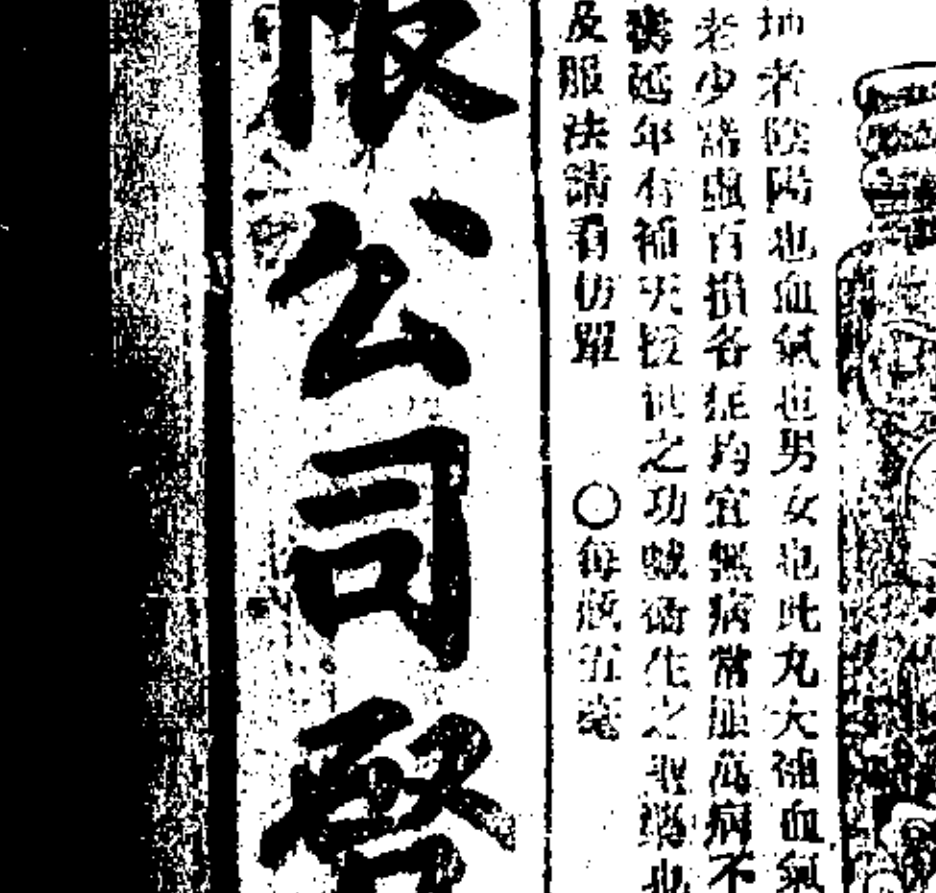 地者陰陽也血氣也男女也此丸大補血氣
老少諸虛百損各症均宜無病常服萬病不
延年有補天授世之功誠衛生之聖藥也
及服法請看仿單 〇每瓶五毫
限公司啓